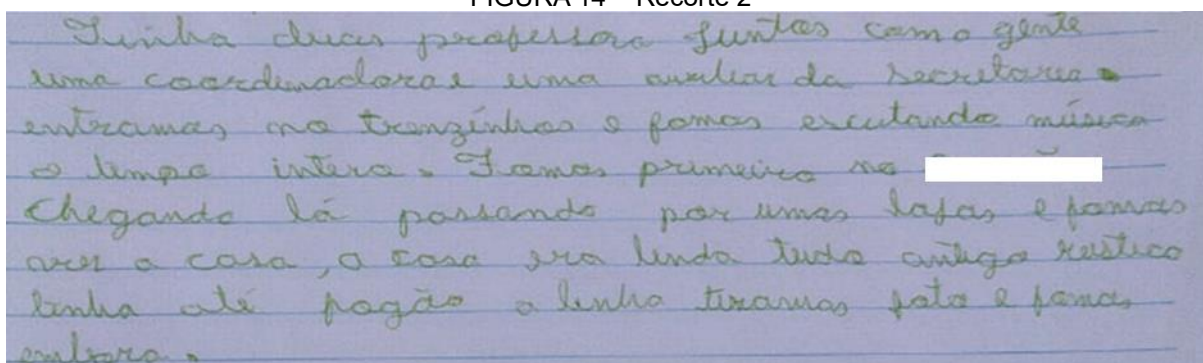 FIGURA 14 – Recorte 2
Tinha duas professora juntas como gente
uma coordenadora e uma auxiliar da secretaria
entramos no trenzinhos e fomos escutando música
o tempo intero. Fomos primeiro no
Chegando lá passando por umas lojas e fomos
a casa, a casa era linda tudo antigo rustico
tinha até fogão a lenha tiramos foto e fomos
embora.